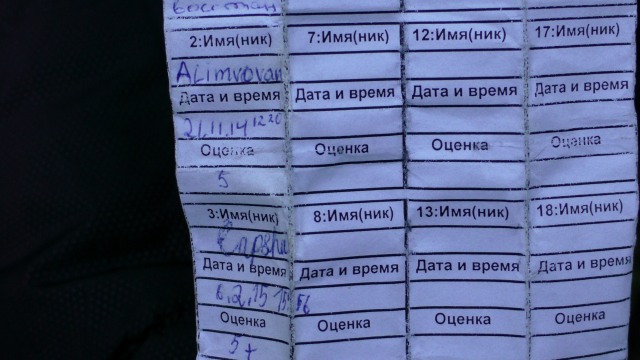 2:Имя(ник) 7:Имя(ник) 12:Имя(ник) 17:Имя(ник)
Alimvovan
Дата и время Дата и время Дата и время Дата и время
21.11.14 12 20
Оценка Оценка Оценка Оценка
5
3:Имя(ник) 8:Имя(ник) 13:Имя(ник) 18:Имя(ник)
Дата и время Дата и время Дата и время Дата и время
6.2.15 15 56
Оценка Оценка Оценка Оценка
5+